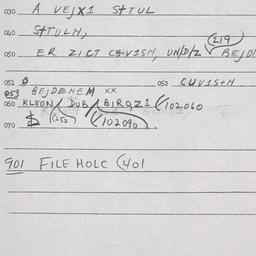 030 A VEJX1 STTUL
040 STTULN,
(219
050 ER ZICT CB-V1SN, UN/D/Z BEJD
051 052 CUV1S+N
053 BEJDENEM xx
060 KLSDN/ DUB/ BIRQZ1 (102060
070 $ (252 (102090 .
901 FILE HOLC (401